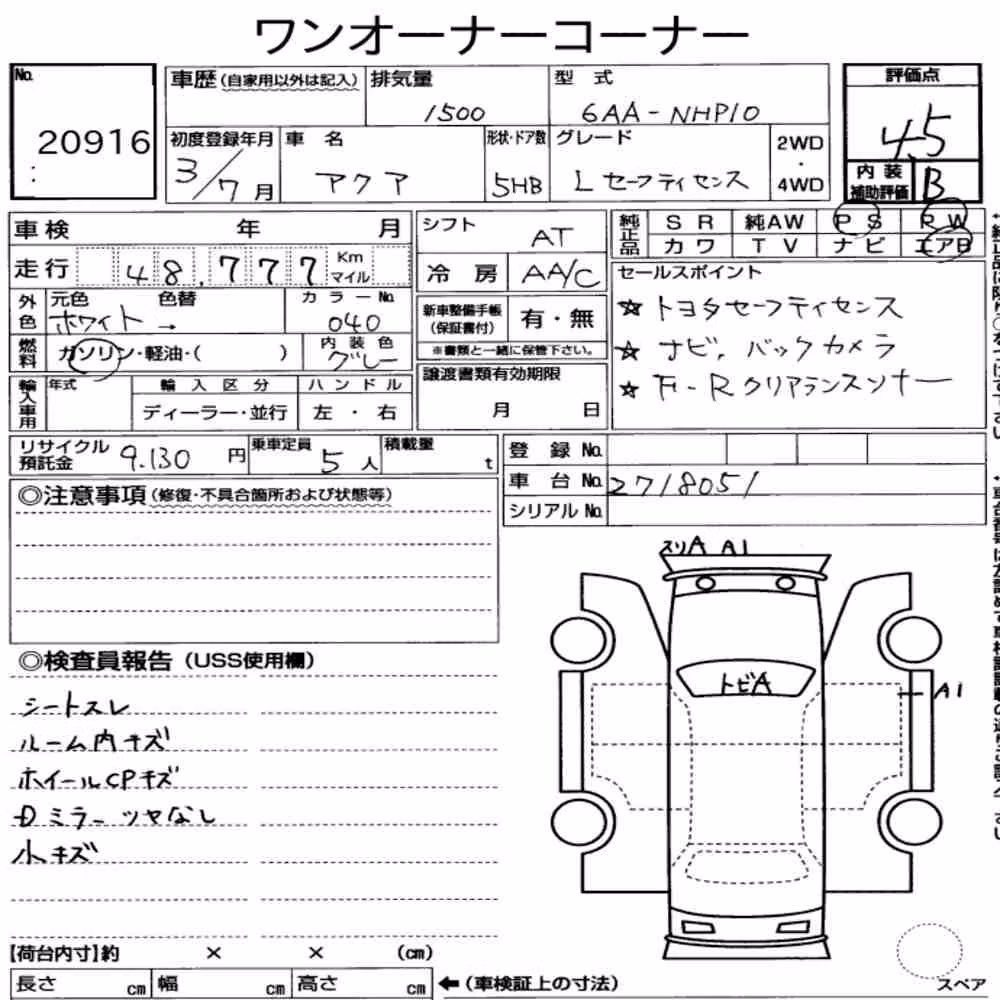 ワンオーナーコーナー
No. 20916
車歴(自家用以外は記入)
排気量 1500
型 式 6AA-NHP10
評価点 4.5
初度登録年月 3/7月
車 名 アクア
形状・ドア数 5HB
グレード L セーフティセンス
2WD・4WD
内装補助評価 B
車検 年 月
シフト AT
純正品 SR 純AW PS PW
カワ TV ナビ エアB
走行 48,777 Km マイル
冷 房 AA/C
セールスポイント
☆ トヨタセーフティセンス
☆ ナビ、バックカメラ
☆ F-Rクリアランスソナー
外色 元色 ホワイト → 色替
カラーNo. 040
新車整備手帳(保証書付) 有・無
※書類と一緒に保管下さい。
燃料 ガソリン・軽油・( )
内装色 グレー
輸入車用 年式
輸入区分 ディーラー・並行
ハンドル 左・右
譲渡書類有効期限
月 日
リサイクル預託金 9.130 円
乗車定員 5人
積載量 t
登 録 No.
車 台 No. 2718051
シリアル No.
◎注意事項(修復・不具合箇所および状態等)
スリA A1
トビA
A1
◎検査員報告(USS使用欄)
シートスレ
ルーム内キズ
ホイールCPキズ
Dミラーツヤなし
小キズ
【荷台内寸】約 × × (cm)
長さ cm 幅 cm 高さ cm
←(車検証上の寸法)
スペア